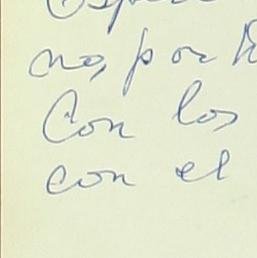 no, por
Con los
con el